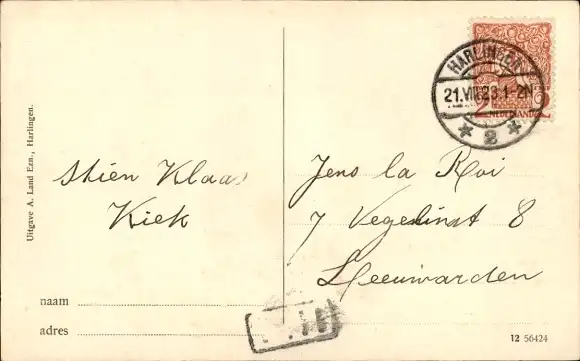 Uitgave A. Land Ezn., Harlingen.
HARLINGEN
21.VII.23.1-2N
2
NEDERLAND
Stien Klaas
Kiek
Jens la Roi
7 Vegelinst 8
Leeuwarden
naam
adres
12 56424